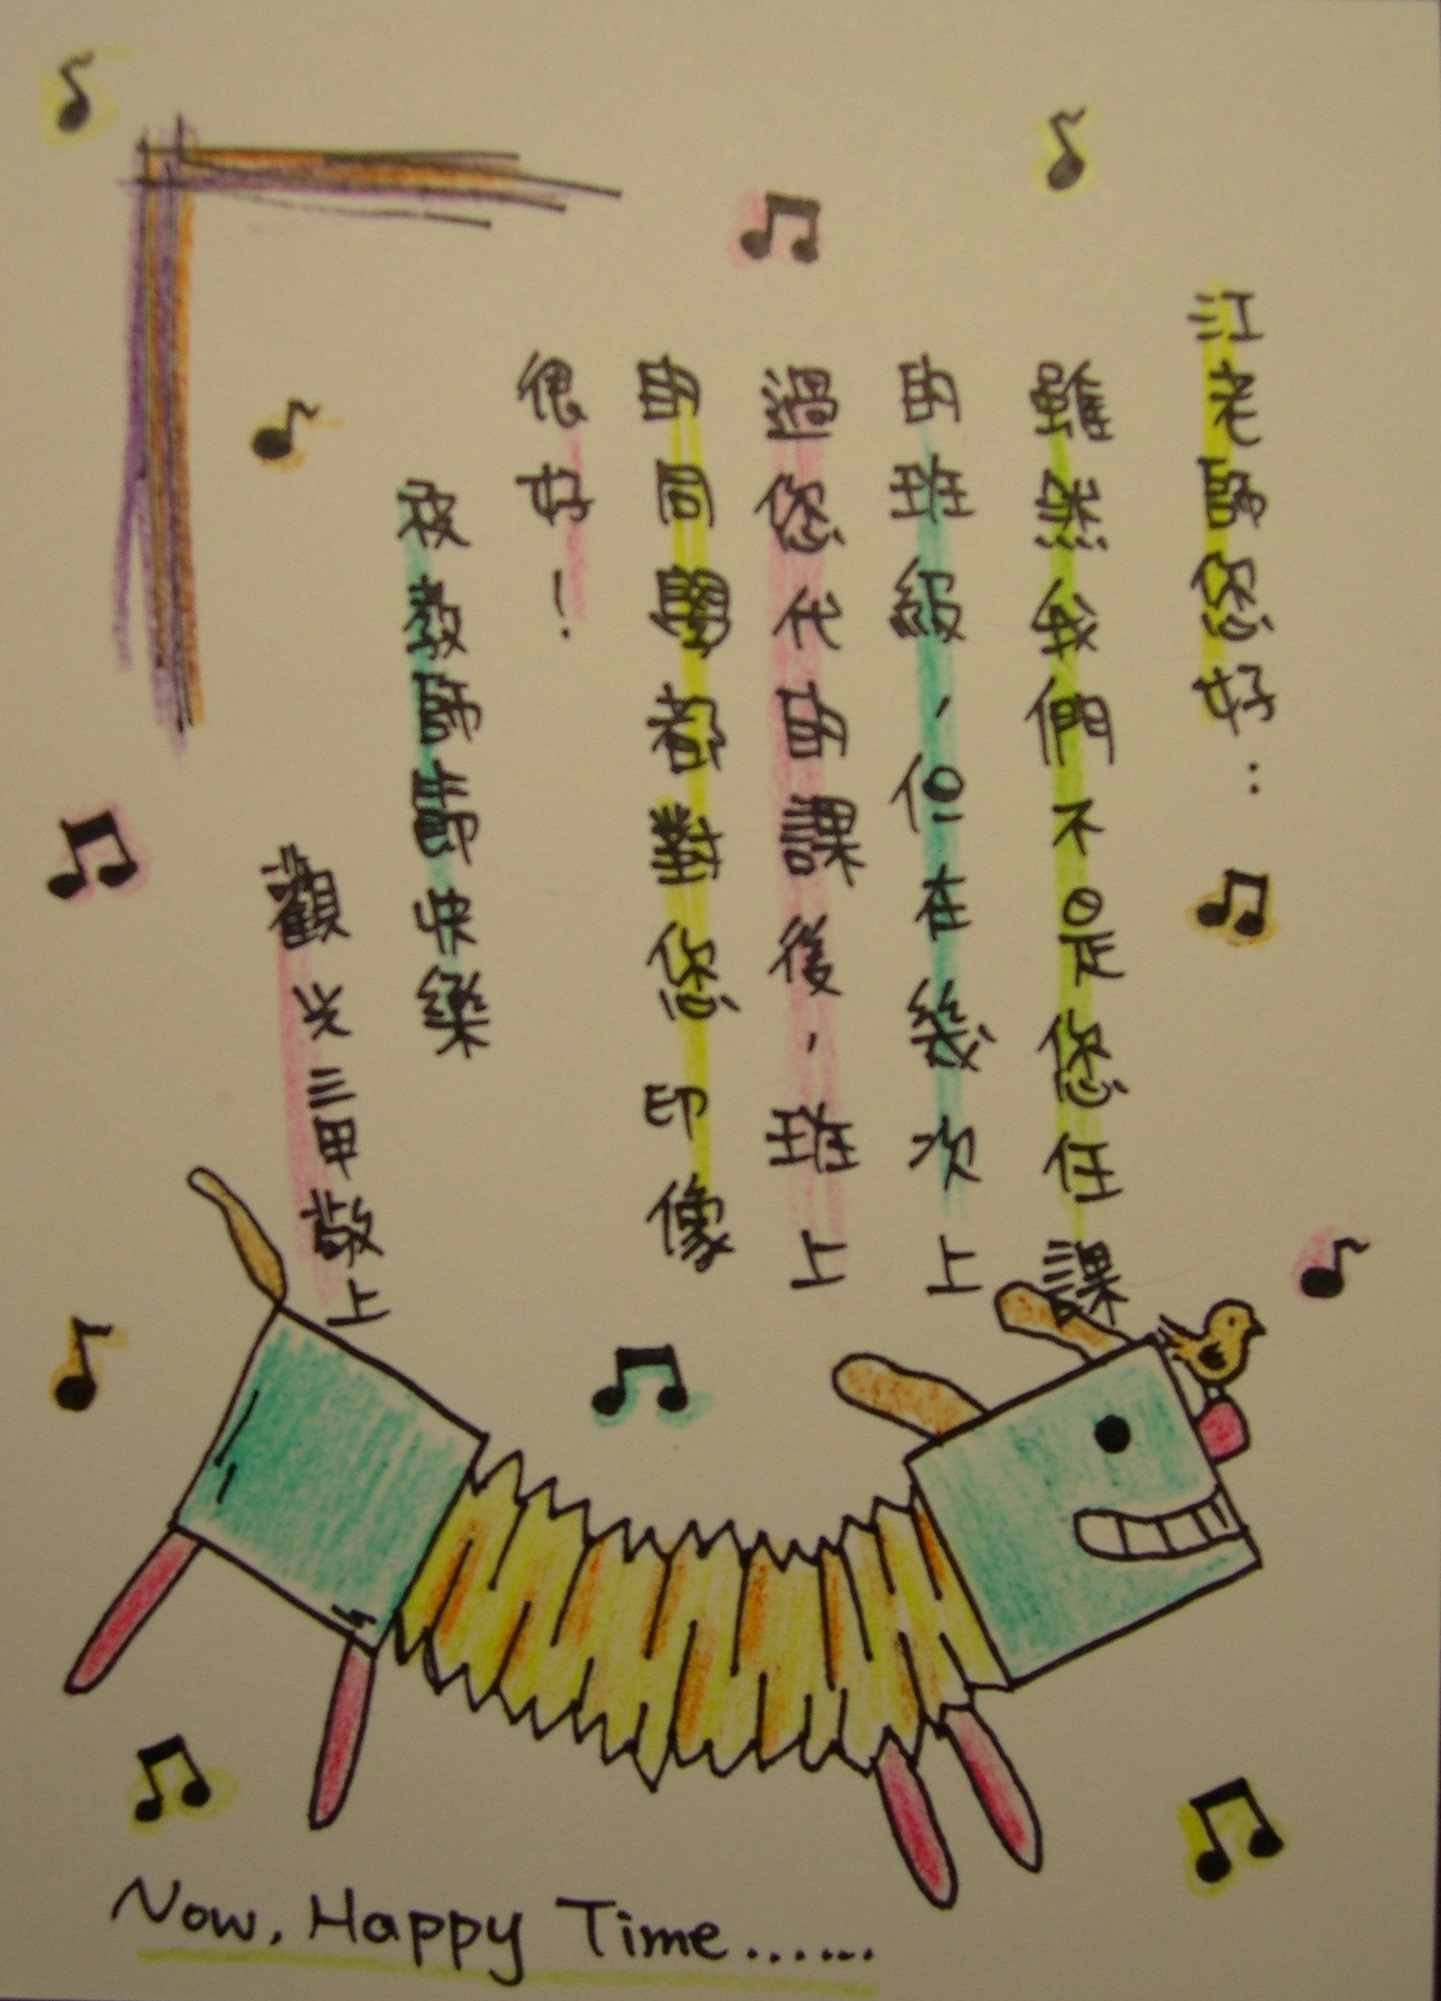 江老師您好：
雖然我們不是您任課
的班級，但在幾次上
過您代的課後，班上
的同學都對您印像
很好！
祝教師節快樂
觀光三甲敬上
Now, Happy Time......